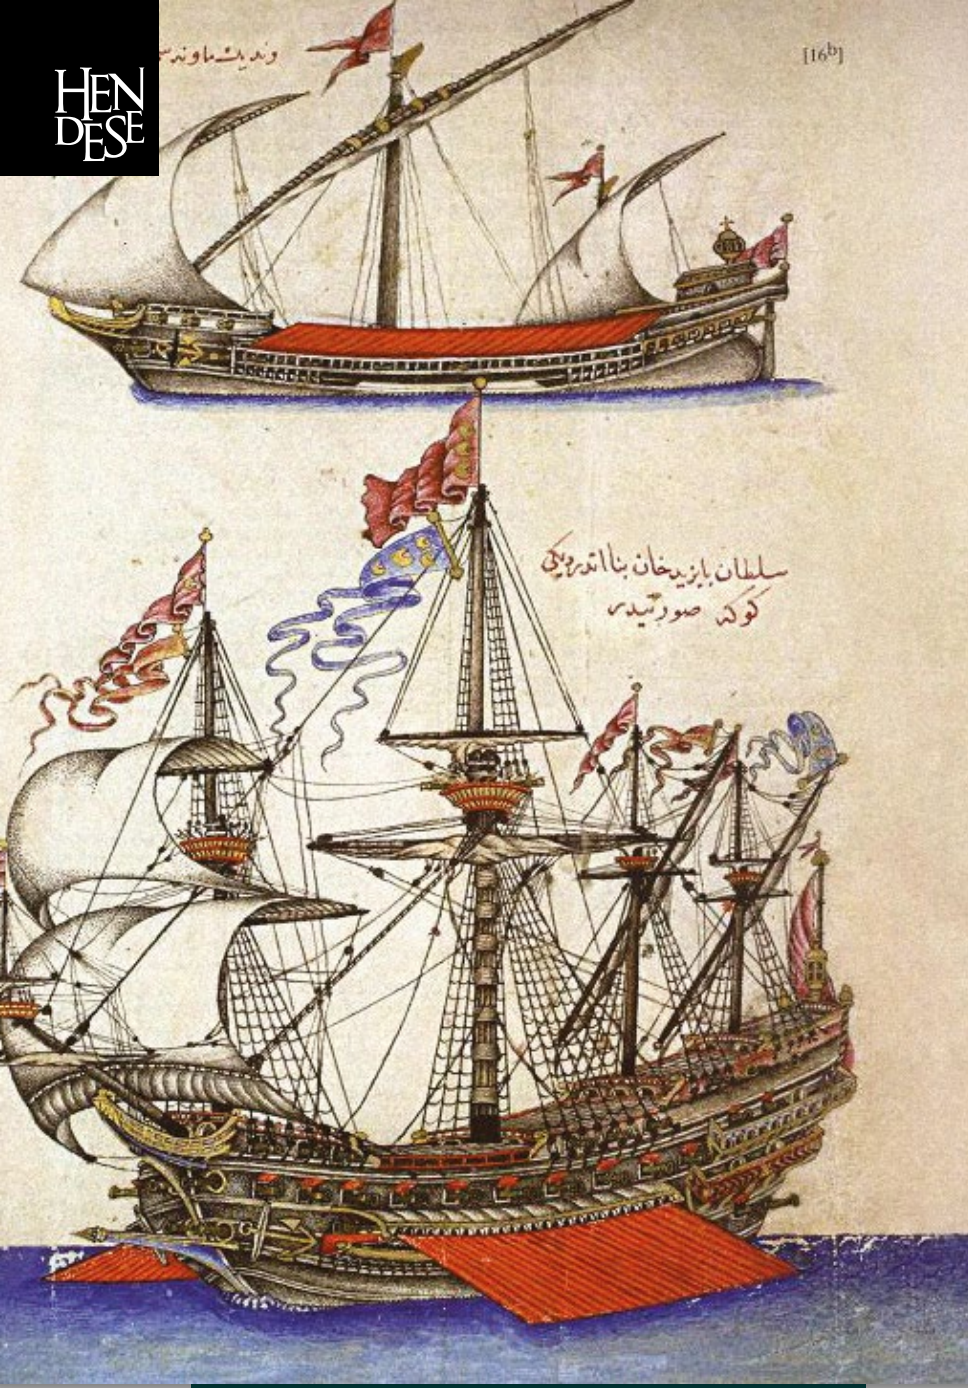 HEN
DESE
وندیك ماونه سی
[16b]
سلطان بايزيد خان بنا اتدردیكی
كوكه صورتیدر